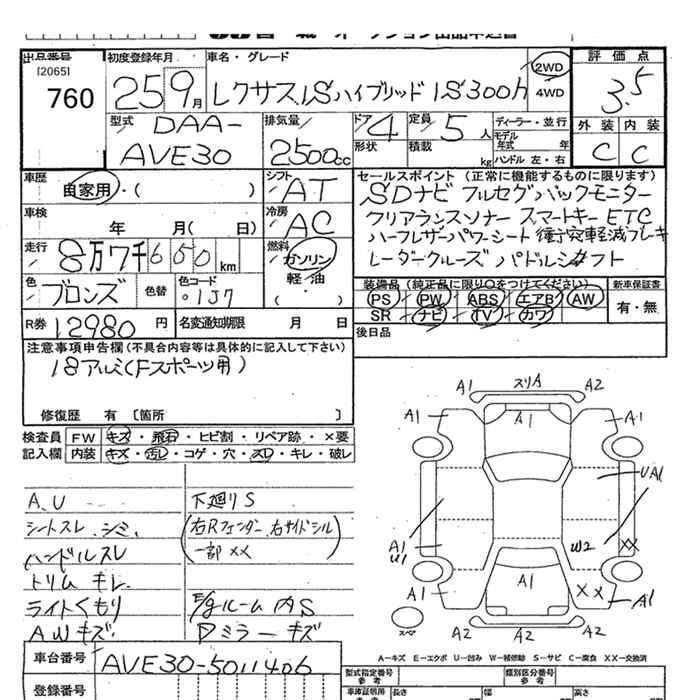 出品番号 [2065] 760
初度登録年月 25 9月
車名・グレード レクサスISハイブリッド IS300h
2WD
4WD
評価点 3.5
外装 C 内装 C
型式 DAA-
AVE30
排気量 2500cc
ドア 4 形状
定員 5人
積載 kg
ディーラー・並行
モデル年式 年
ハンドル 左・右
車歴 自家用・( )
シフト AT
車検 年 月( 日)
冷房 AC
走行 8万7千650km
燃料 ガソリン
軽・油
( ・ )
色 ブロンズ 色替 色コード 1J7
R券 12980円 名変通知期限 月 日
セールスポイント (正常に機能するものに限ります)
SDナビ フルセグバックモニター
クリアランスソナー スマートキー ETC
ハーフレザーパワーシート 衝突軽減ブレーキ
レーダークルーズ パドルシフト
装備品(純正品に限り○をつけてください)
PS PW ABS エアB AW
SR ナビ TV カワ
新車保証書
有・無
後日品
注意事項申告欄(不具合内容等は具体的に記入して下さい)
18アルミ(Fスポーツ用)
修復歴 有 〔箇所 〕
検査員 FW キズ・飛石・ヒビ割・リペア跡・×要
記入欄 内装 キズ・汚レ・コゲ・穴・スレ・キレ・破レ
A、U
シートスレ、シミ、
ハンドルスレ
トリムキレ
ライトくもり
AWキズ
下廻りS
(右Rフェンダー、右サイドシル
一部××)
E/gルーム内S
Dミラーキズ
A1 スリA A2
A1 A1 A1
UA1
A1
U1
W2 ××
A1 ××
A1 A1
スペア
A2 A2 A2
A―キズ E―エクボ U―凹み W―補修跡 S―サビ C―腐食 XX―交換済
車台番号 AVE30-5011406
登録番号
型式指定番号
参考
類別区分番号
参考
車庫証明用
参考
長さ 幅 高さ